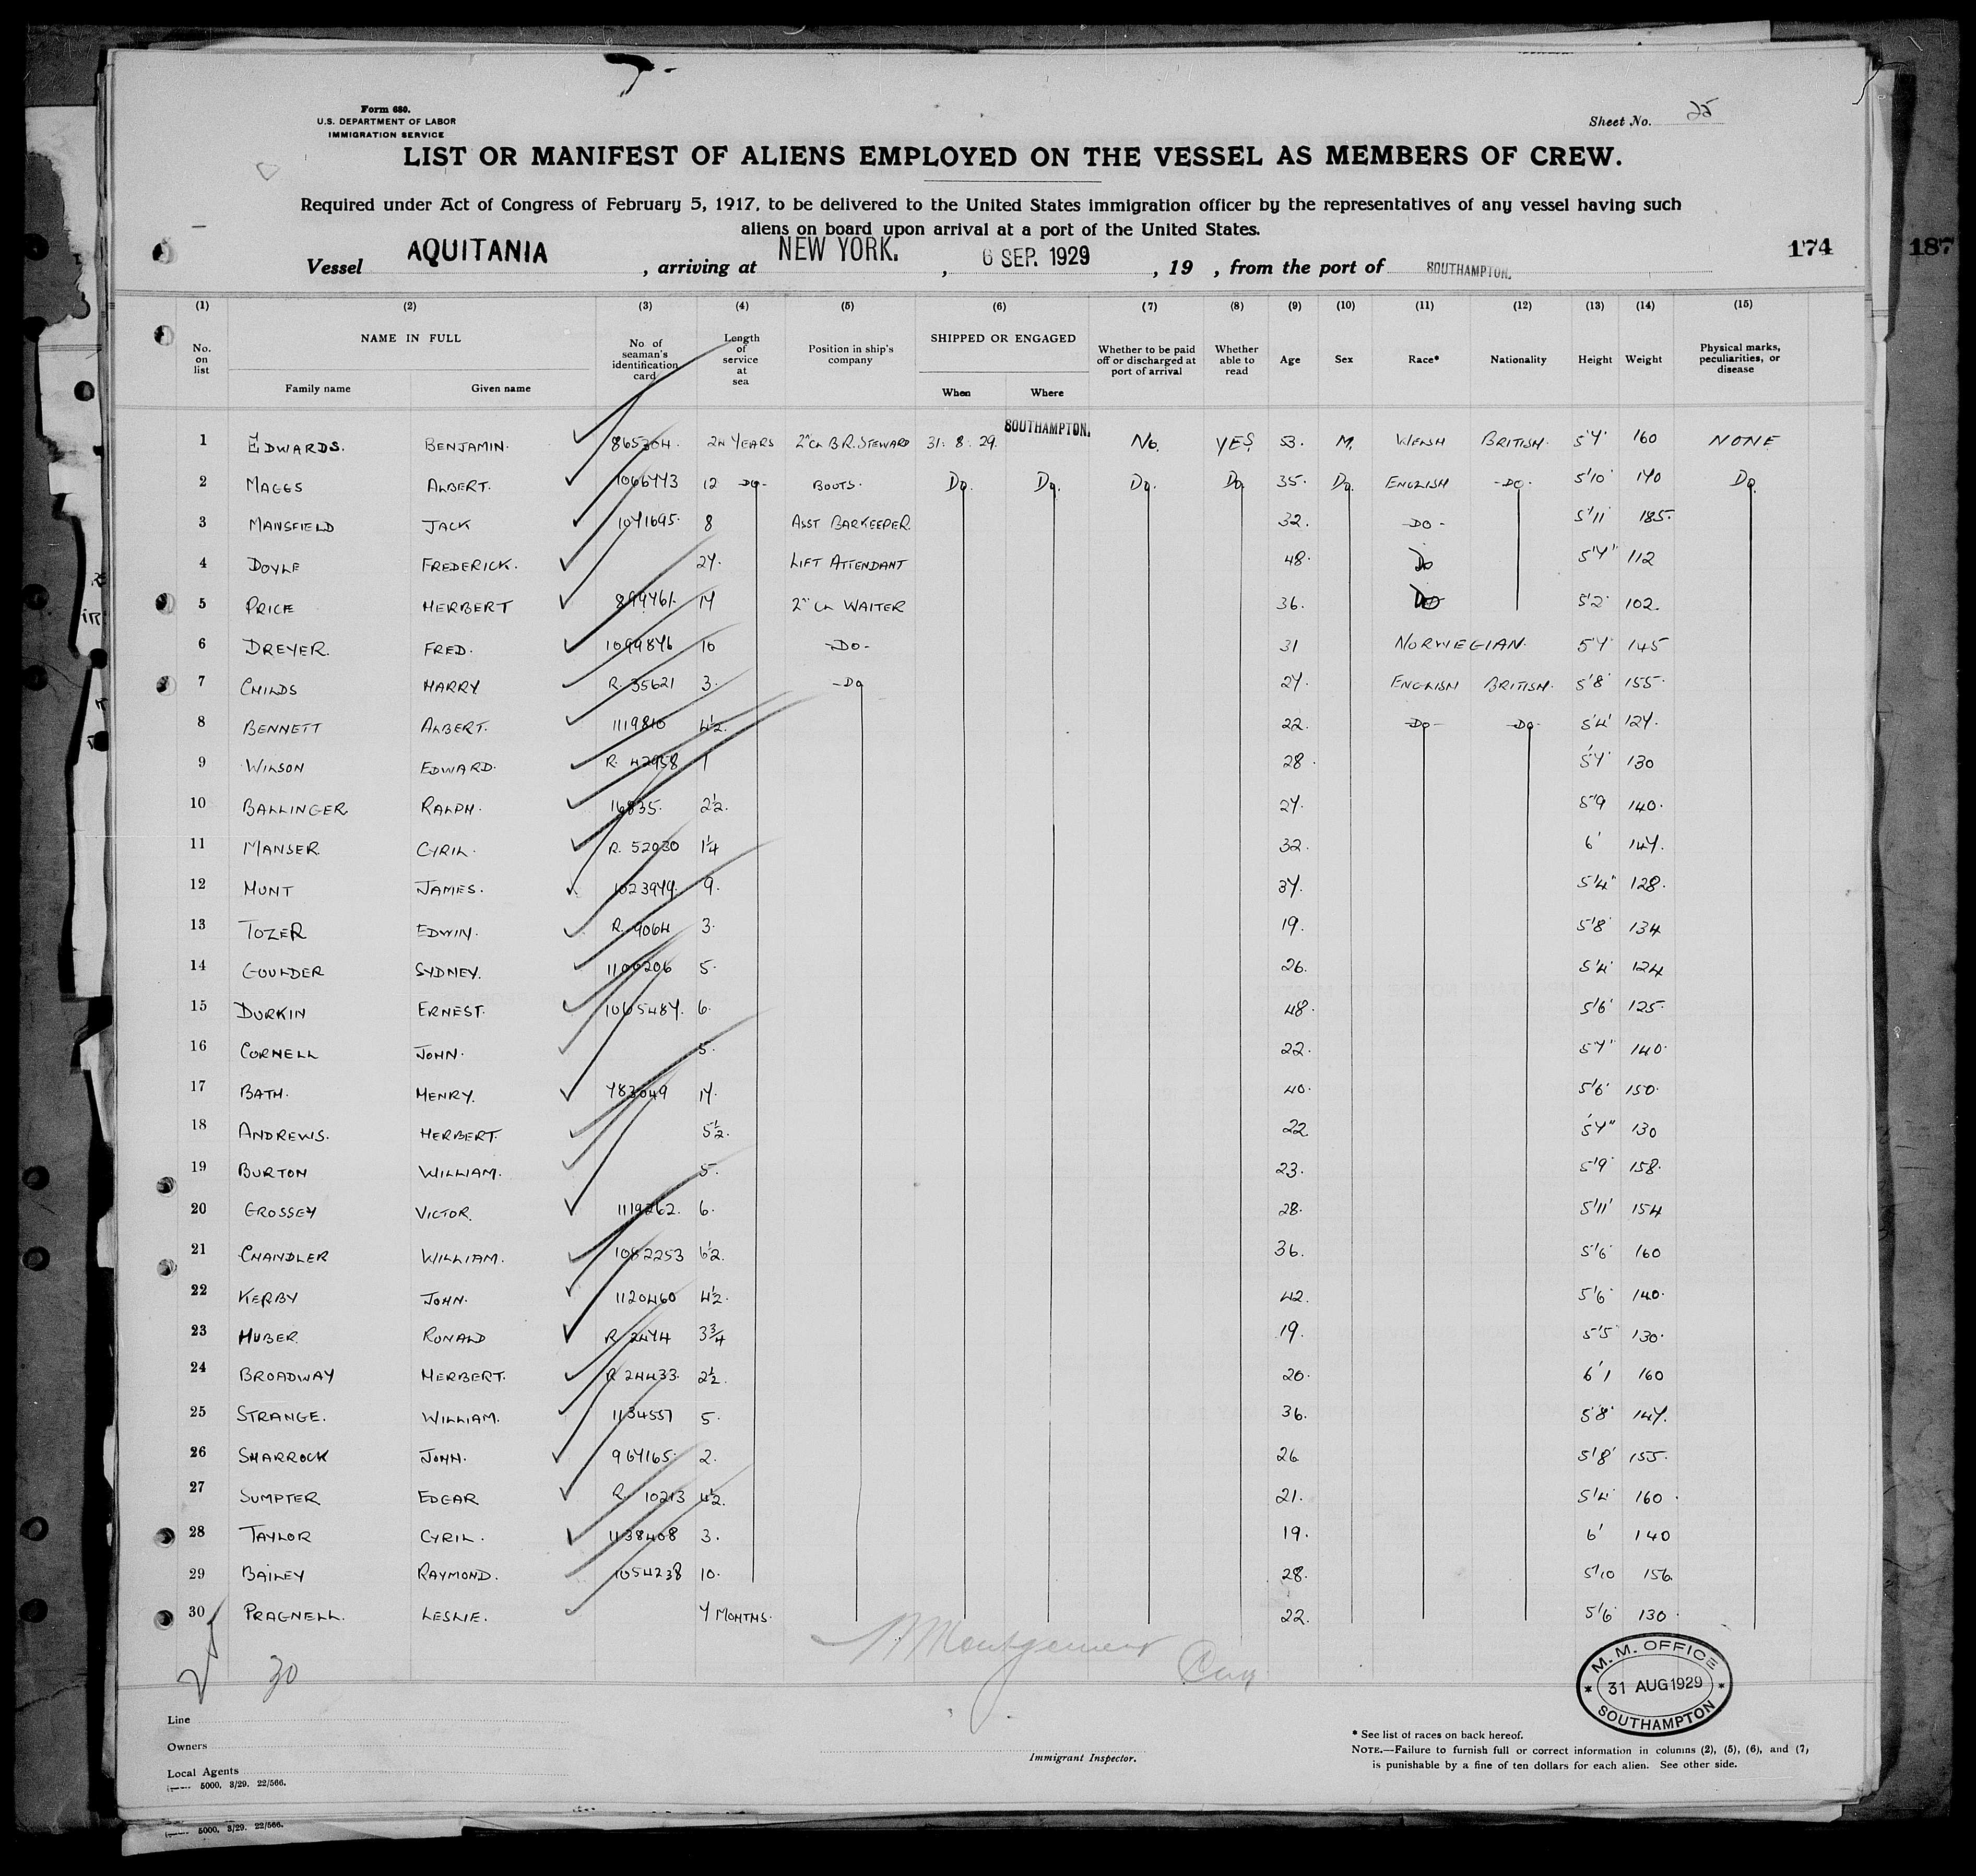 Form 680.
U.S. DEPARTMENT OF LABOR
IMMIGRATION SERVICE
Sheet No. 25
LIST OR MANIFEST OF ALIENS EMPLOYED ON THE VESSEL AS MEMBERS OF CREW.
Required under Act of Congress of February 5, 1917, to be delivered to the United States immigration officer by the representatives of any vessel having such
aliens on board upon arrival at a port of the United States.
Vessel AQUITANIA, arriving at NEW YORK., 6 SEP. 1929, 19 , from the port of SOUTHAMPTON.
174
187
(1) (2) (3) (4) (5) (6) (7) (8) (9) (10) (11) (12) (13) (14) (15)
No. on list NAME IN FULL Family name Given name No. of seaman's identification card Length of service at sea Position in ship's company SHIPPED OR ENGAGED When Where Whether to be paid off or discharged at port of arrival Whether able to read Age Sex Race* Nationality Height Weight Physical marks, peculiarities, or disease
1 EDWARDS. BENJAMIN. 865304. 24 YEARS 2nd CL B.R. STEWARD 31. 8. 29. SOUTHAMPTON. No. YES 53. M. WELSH BRITISH. 5'7' 160 NONE
2 MAGGS ALBERT. 1066773 12 -DO- BOOTS. Do. Do. Do. Do 35. Do. ENGLISH -DO- 5'10 170 Do.
3 MANSFIELD JACK 1071695. 8 ASST BARKEEPER 32. -DO- 5'11 185.
4 DOYLE FREDERICK. 27. LIFT ATTENDANT 48. Do 5'7" 112
5 PRICE HERBERT 899761. 17 2nd CL WAITER 36. Do 5'2" 102.
6 DREYER. FRED. 1099876 10 -DO- 31 NORWEGIAN. 5'7' 145
7 CHILDS HARRY R. 35621 3. -DO 27. ENGLISH BRITISH. 5'8' 155.
8 BENNETT ALBERT. 1119810 4½. 22. -DO- -DO- 5'4' 127.
9 WILSON EDWARD. R. 42958 1 28. 5'7' 130
10 BALLINGER RALPH. 16835. 2½. 27. 5'9 140.
11 MANSER CYRIL. R. 52030 1¼ 32. 6' 147.
12 HUNT JAMES. 1023979. 9. 37. 5'4" 128.
13 TOZER EDWIN. R. 9064 3. 19. 5'8' 134
14 GOULDER SYDNEY. 1100206 5. 26. 5'4' 124
15 DURKIN ERNEST. 1065487. 6. 48. 5'6' 125.
16 CORNELL JOHN. 5. 22. 5'7" 140.
17 BATH. HENRY. 783049 17. 40. 5'6' 150.
18 ANDREWS. HERBERT. 5½. 22. 5'7" 130
19 BURTON WILLIAM. 5. 23. 5'9' 158.
20 GROSSEY VICTOR. 1119262. 6. 28. 5'11' 154
21 CHANDLER WILLIAM. 1082253 6½. 36. 5'6' 160
22 KERBY JOHN. 1120460 4½. 42. 5'6' 140.
23 HUBER RONALD R 2474 3¾ 19. 5'5' 130.
24 BROADWAY HERBERT. R 24433. 2½. 20. 6'1 160
25 STRANGE. WILLIAM. 1134557 5. 36. 5'8' 147.
26 SHARROCK JOHN. 967165. 2. 26 5'8' 155.
27 SUMPTER EDGAR R. 10213 4½. 21. 5'4' 160.
28 TAYLOR CYRIL. 1138408 3. 19. 6' 140
29 BAILEY RAYMOND. 1054238 10. 28. 5'10 156.
30 PRAGNELL. LESLIE. 7 MONTHS. 22. 5'6' 130.
30
M. M. OFFICE
31 AUG 1929
SOUTHAMPTON
Line
Owners
Local Agents
5000. 3/29. 22/566.
Immigrant Inspector.
* See list of races on back hereof.
NOTE.—Failure to furnish full or correct information in columns (2), (5), (6), and (7),
is punishable by a fine of ten dollars for each alien. See other side.
5000. 3/29. 22/566.